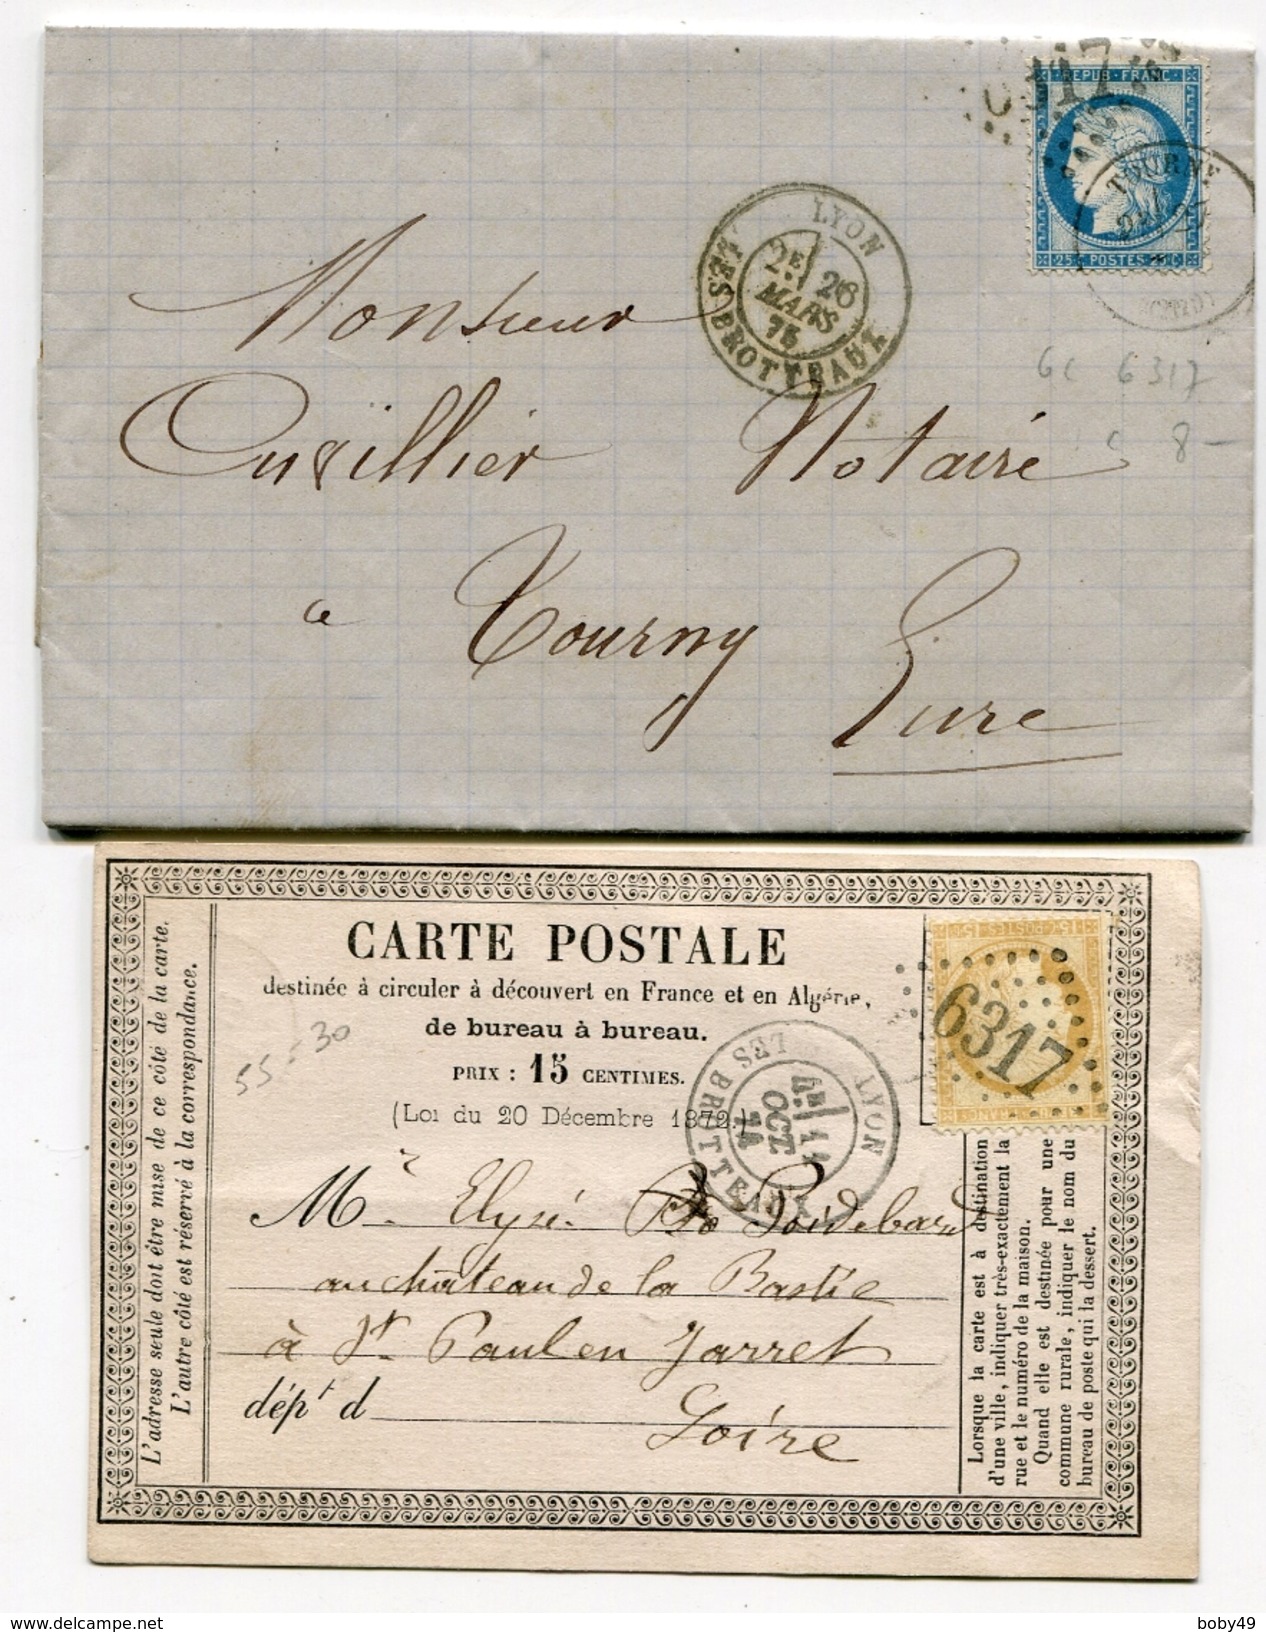 6317
REPUB·FRANC
25 c POSTES 25 c
TOURNY
LYON
2E 26
MARS
75
LES BROTTEAUX
GC 6317
8-
Monsieur
Cuvillier Notaire
a Tourny
Eure
CARTE POSTALE
destinée à circuler à découvert en France et en Algérie,
de bureau à bureau.
PRIX : 15 CENTIMES.
(Loi du 20 Décembre 1872.)
55 - 30
6317
LYON
OCT
74
LES BROTTEAUX
Mr Elysé Poidebard
au château de la Bastie
à St Paul en Jarret
dépt d Loire
L'adresse seule doit être mise de ce côté de la carte.
L'autre côté est réservé à la correspondance.
Lorsque la carte est à destination
d'une ville, indiquer très-exactement la
rue et le numéro de la maison.
Quand elle est destinée pour une
commune rurale, indiquer le nom du
bureau de poste qui la dessert.
www.delcampe.net
boby49